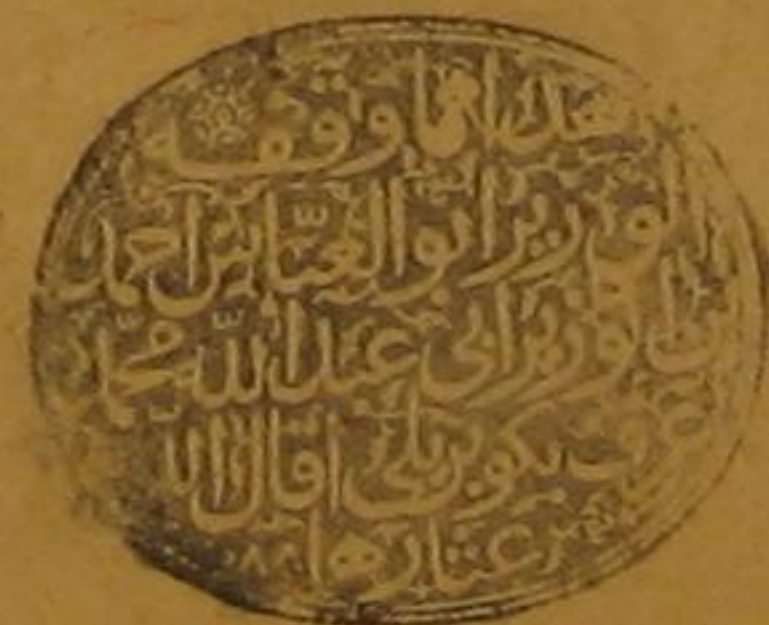 هذا مما وقفه
الوزير ابو العبّاس احمد
ابن الوزير ابي عبد اللّه محمّد
عرف بكوبريلي اقال اللّه
عثارهما ١٠٨٨